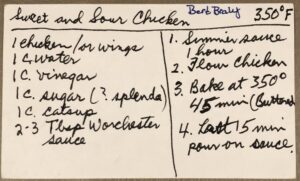 Sweet and Sour Chicken
350°F
1 chicken/or wings
1 c. water
1 c. vinegar
1 c. sugar (? splenda)
1 c. catsup
2-3 Tbsp Worchester
sauce
1. Simmer sauce
hour
2. Flour chicken
3. Bake at 350°
45 min (Buttered)
4. Last 15 min
pour on sauce.